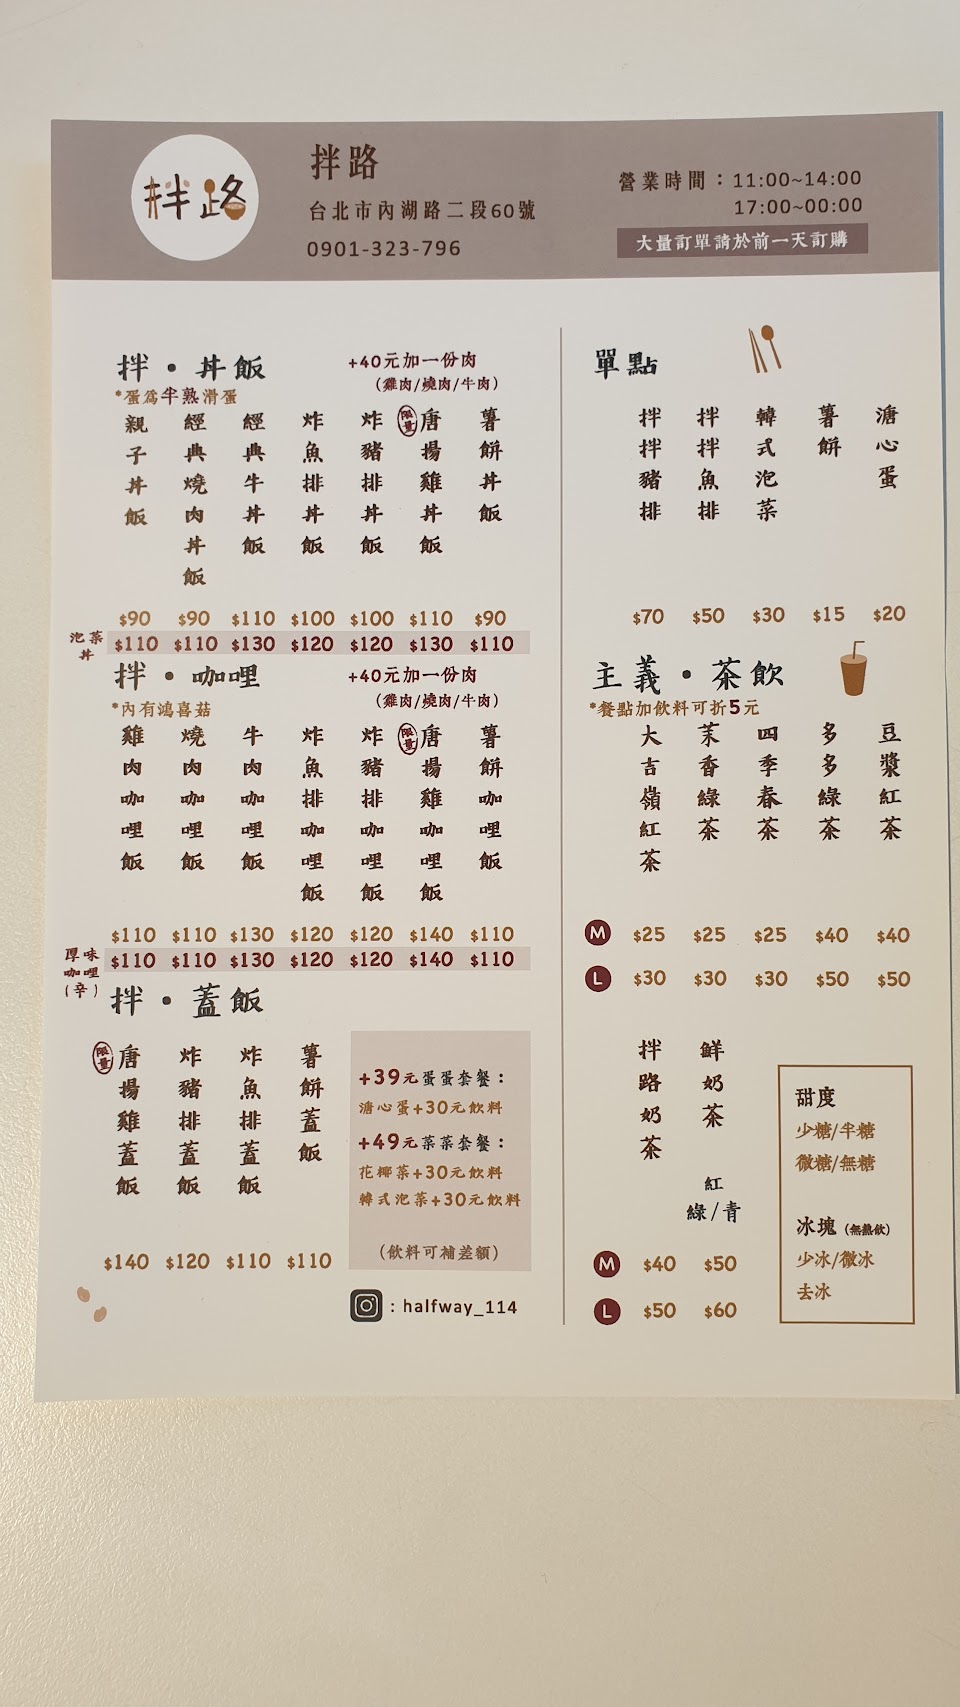 拌路
拌路
台北市內湖路二段60號
0901-323-796
營業時間：11:00~14:00
17:00~00:00
大量訂單請於前一天訂購
拌・丼飯
+40元加一份肉
（雞肉/燒肉/牛肉）
*蛋為半熟滑蛋
親子丼飯
經典燒肉丼飯
經典牛丼飯
炸魚排丼飯
炸豬排丼飯
限量
唐揚雞丼飯
薯餅丼飯
$90 $90 $110 $100 $100 $110 $90
泡菜丼
$110 $110 $130 $120 $120 $130 $110
拌・咖哩
+40元加一份肉
（雞肉/燒肉/牛肉）
*內有鴻喜菇
雞肉咖哩飯
燒肉咖哩飯
牛肉咖哩飯
炸魚排咖哩飯
炸豬排咖哩飯
限量
唐揚雞咖哩飯
薯餅咖哩飯
$110 $110 $130 $120 $120 $140 $110
厚味咖哩(辛)
$110 $110 $130 $120 $120 $140 $110
拌・蓋飯
限量
唐揚雞蓋飯
炸豬排蓋飯
炸魚排蓋飯
薯餅蓋飯
$140 $120 $110 $110
+39元蛋蛋套餐：
溏心蛋+30元飲料
+49元菜菜套餐：
花椰菜+30元飲料
韓式泡菜+30元飲料
（飲料可補差額）
: halfway_114
單點
拌拌豬排
拌拌魚排
韓式泡菜
薯餅
溏心蛋
$70 $50 $30 $15 $20
主義・茶飲
*餐點加飲料可折5元
大吉嶺紅茶
茉香綠茶
四季春茶
多多綠茶
豆漿紅茶
M $25 $25 $25 $40 $40
L $30 $30 $30 $50 $50
拌路奶茶
鮮奶茶
紅
綠/青
M $40 $50
L $50 $60
甜度
少糖/半糖
微糖/無糖
冰塊（無熱飲）
少冰/微冰
去冰